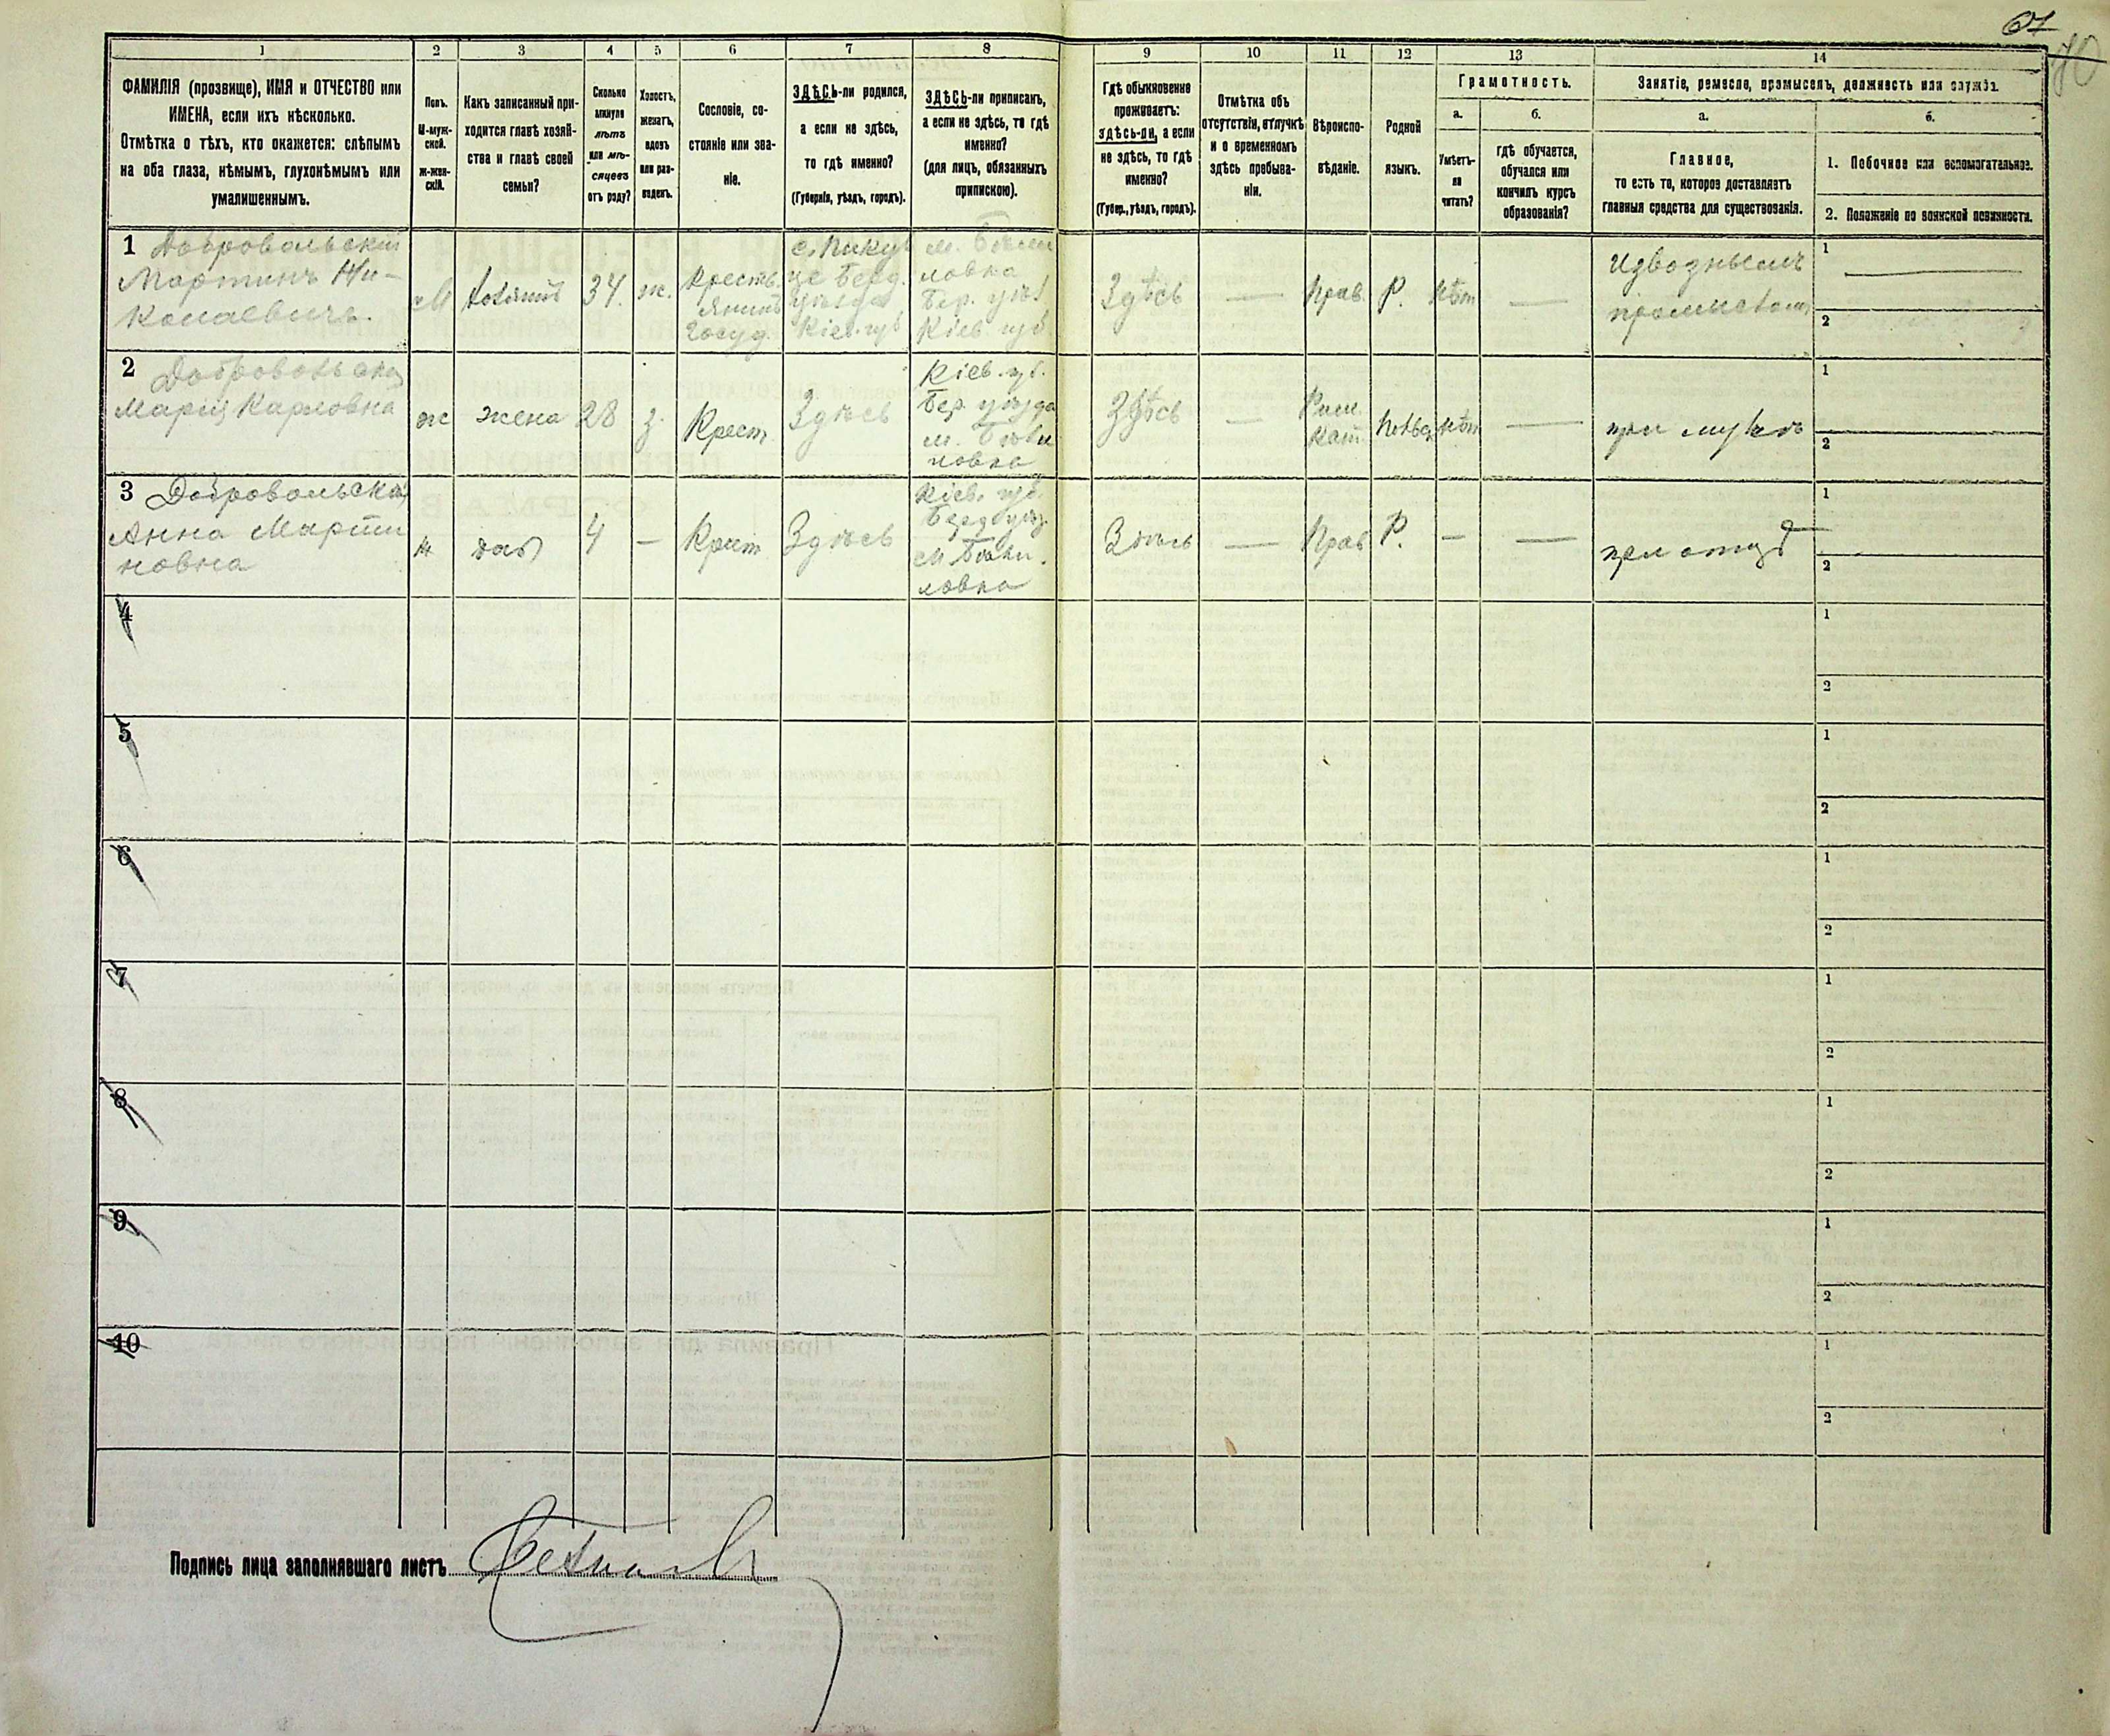 67
70
1 2 3 4 5 6 7 8 9 10 11 12 13 14
ФАМИЛІЯ (прозвище), ИМЯ и ОТЧЕСТВО или
ИМЕНА, если ихъ нѣсколько.
Отмѣтка о тѣхъ, кто окажется: слѣпымъ
на оба глаза, нѣмымъ, глухонѣмымъ или
умалишеннымъ.
Полъ.
М-муж-
ской.
ж-жен-
скій.
Какъ записанный при-
ходится главѣ хозяй-
ства и главѣ своей
семьи?
Сколько
минуло
лѣтъ
или мѣ-
сяцевъ
отъ роду?
Холостъ,
женатъ,
вдовъ
или раз-
веденъ.
Сословіе, со-
стояніе или зва-
ніе.
ЗДѢСЬ-ли родился,
а если не здѣсь,
то гдѣ именно?
(Губернія, уѣздъ, городъ).
ЗДѢСЬ-ли приписанъ,
а если не здѣсь, то гдѣ
именно?
(для лицъ, обязанныхъ
припискою).
Гдѣ обыкновенно
проживаетъ:
здѣсь-ли, а если
не здѣсь, то гдѣ
именно?
(Губер., уѣздъ, городъ).
Отмѣтка объ
отсутствіи, отлучкѣ
и о временномъ
здѣсь пребыва-
ніи.
Вѣроиспо-
вѣданіе.
Родной
языкъ.
Грамотность.
а.
Умѣетъ-
ли
читать?
б.
гдѣ обучается,
обучался или
кончилъ курсъ
образованія?
Занятіе, ремесло, промыселъ, должность или служба.
а.
Главное,
то есть то, которое доставляетъ
главныя средства для существованія.
б.
1. Побочное или вспомогательное.
2. Положеніе по воинской повинности.
1 Добровольскій
Мартинъ Ни-
колаевичъ.
М
хозяинъ
34.
ж.
Кресть
янинъ
Госуд.
Берд.
уѣзда
Кіев. губ
м.
ловка
Бер. уѣз
Кіев губ.
Здѣсь
—
Прав.
Р.
Нѣт
—
Изводнымъ
промысломъ
1 —
2
2 Добровольская
Марія Карловна
ж
жена
28
з.
Крест
Здѣсь
Кіев. губ.
Бер. уѣзда
м.
ловка
Здѣсь
—
Рим.
Кат.
нѣт
—
при мужѣ
1
2
3 Добровольская
Анна Марти
новна
ж
дач
4
—
Крест
Здѣсь
Кіев. губ.
Берд уѣз.
м.
ловка
Здѣсь
—
Прав
Р.
—
—
при отцѣ
1
2
4
1
2
5
1
2
6
1
2
7
1
2
8
1
2
9
1
2
10
1
2
Подпись лица заполнявшаго листъ